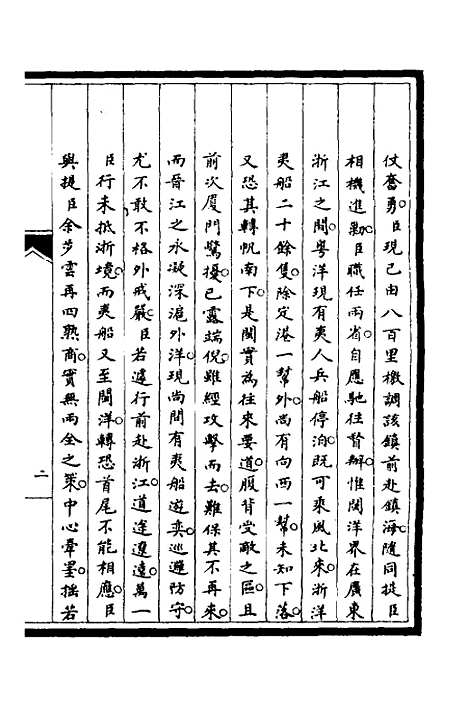 仗奮勇臣現已由八百里檄調該鎮前赴鎮海隨同提臣
相機進勦臣職任兩省自應馳往督辦惟閩洋界在廣東
浙江之間粵洋現有夷人兵船停泊既可乘風北來浙洋
夷船二十餘隻除定港一幫外尚有向西一幫未知下落
又恐其轉帆南下是閩實為往來要道腹背受敵之區且
前次廈門驚擾已露端倪雖經攻擊而去難保其不再來
而晉江之永凝深滬外洋現尚間有夷船遊奕巡邏防守
尤不敢不格外戒嚴臣若遽行前赴浙江道途遼遠萬一
臣行未抵浙境而夷船又至閩洋轉恐首尾不能相應臣
與提臣余步雲再四熟商實無兩全之策中心韋墨拙若
二